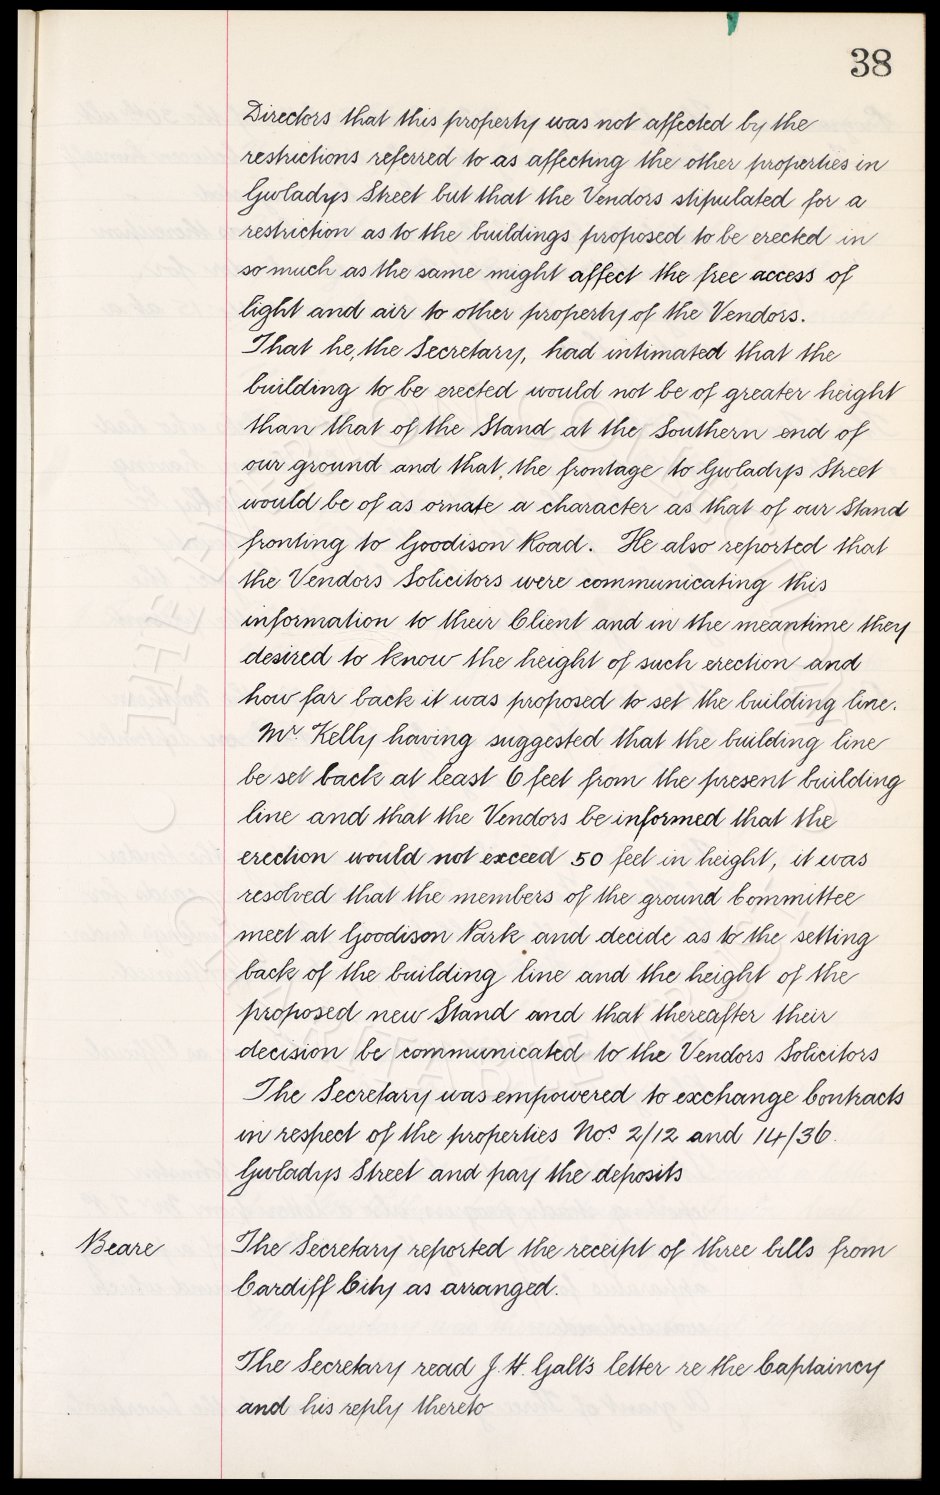 38
Directors that this property was not affected by the
restrictions referred to as affecting the other properties in
Gwladys Street but that the Vendors stipulated for a
restriction as to the buildings proposed to be erected in
so much as the same might affect the free access of
light and air to other property of the Vendors.
That he, the Secretary, had intimated that the
building to be erected would not be of greater height
than that of the Stand at the Southern end of
our ground and that the frontage to Gwladys Street
would be of as ornate a character as that of our Stand
fronting to Goodison Road. He also reported that
the Vendors Solicitors were communicating this
information to their Client and in the meantime they
desired to know the height of such erection and
how far back it was proposed to set the building line.
Mr. Kelly having suggested that the building line
be set back at least 6 feet from the present building
line and that the Vendors be informed that the
erection would not exceed 50 feet in height, it was
resolved that the members of the ground Committee
meet at Goodison Park and decide as to the setting
back of the building line and the height of the
proposed new Stand and that thereafter their
decision be communicated to the Vendors Solicitors
The Secretary was empowered to exchange Contracts
in respect of the properties Nos. 2/12 and 14/36.
Gwladys Street and pay the deposits
Beare The Secretary reported the receipt of three bills from
Cardiff City as arranged.
The Secretary read J. H. Galt's letter re the Captaincy
and his reply thereto